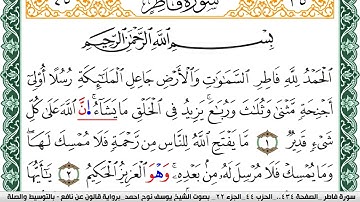 سورة فاطر
بِسْمِ اللَّهِ الرَّحْمَٰنِ الرَّحِيمِ
الْحَمْدُ لِلَّهِ فَاطِرِ السَّمَٰوَٰتِ وَالْأَرْضِ جَاعِلِ الْمَلَٰٓئِكَةِ رُسُلًا أُوْلِىٓ
أَجْنِحَةٍ مَّثْنَىٰ وَثُلَٰثَ وَرُبَٰعَ يَزِيدُ فِى الْخَلْقِ مَا يَشَآءُ إِنَّ اللَّهَ عَلَىٰ كُلِّ
شَىْءٍ قَدِيرٌ ١ مَّا يَفْتَحِ اللَّهُ لِلنَّاسِ مِن رَّحْمَةٍ فَلَا مُمْسِكَ لَهَا
وَمَا يُمْسِكْ فَلَا مُرْسِلَ لَهُۥ مِنۢ بَعْدِهِۦ وَهْوَ الْعَزِيزُ الْحَكِيمُ ٢ يَٰٓأَيُّهَا
سورة فاطر .. الصفحة ٤٣٤.. الحزب ٤٤ .الجزء ٢٢ . بصوت الشيخ يوسف نوح احمد .برواية قالون عن نافع - بالتوسيط والصلة